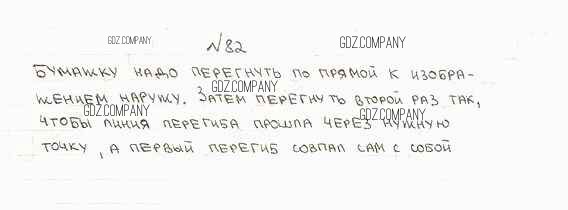 GDZ.COMPANY
№82
GDZ.COMPANY
БУМАЖКУ НАДО ПЕРЕГНУТЬ ПО ПРЯМОЙ К ИЗОБРА-
GDZ.COMPANY
ЖЕНИЕМ НАРУЖУ. ЗАТЕМ ПЕРЕГНУТЬ ВТОРОЙ РАЗ ТАК,
GDZ.COMPANY
GDZ.COMPANY
ЧТОБЫ ЛИНИЯ ПЕРЕГИБА ПРОШЛА ЧЕРЕЗ НУЖНУЮ
ТОЧКУ, А ПЕРВЫЙ ПЕРЕГИБ СОВПАЛ САМ С СОБОЙ